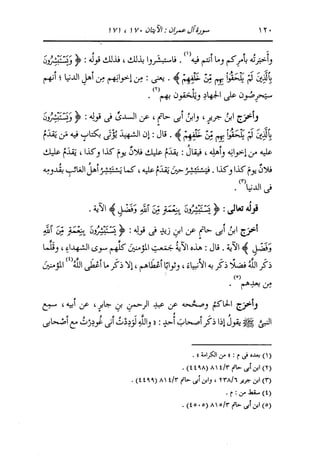 ١٢٠ سورة آل عمران : الآيتان ١٧٠ ، ١٧١
وأخبرتُه بأمرِكم وما أنتم فيه(١) . فاستبشَروا بذلك ، فذلك قولُه : ﴿ وَيَسْتَبْشِرُونَ
بِٱلَّذِينَ لَمْ يَلْحَقُوا۟ بِهِم مِّنْ خَلْفِهِمْ ﴾ . يعنى : مِن إخوانِهم مِن أهلِ الدنيا ؛ أنهم
سيَحرِصُون على الجهادِ ويَلْحَقون بهم(٢) .
وأخرَج ابنُ جريرٍ ، وابنُ أبى حاتمٍ ، عن السدىِّ فى قولِه : ﴿ وَيَسْتَبْشِرُونَ
بِٱلَّذِينَ لَمْ يَلْحَقُوا۟ بِهِم مِّنْ خَلْفِهِمْ ﴾ . قال : إن الشهيدَ يُؤْتَى بكتابٍ فيه مَن يَقدَمُ
عليه مِن إخوانِه وأهلِه ، فيقالُ : يقدَمُ عليك فلانٌ يومَ كذا وكذا ، يَقدَمُ عليك
فلانٌ يومَ كذا وكذا . فيَستَبْشِرُ حينَ يقدَمُ عليه ، كما يَستَبْشِرُ أهلُ الغائبِ بقدومِه
فى الدنيا(٣) .
قولُه تعالى : ﴿ يَسْتَبْشِرُونَ بِنِعْمَةٍ مِّنَ ٱللَّهِ وَفَضْلٍ ﴾ الآية .
أخرَج ابنُ أبى حاتمٍ عن ابنِ زيدٍ فى قولِه : ﴿ يَسْتَبْشِرُونَ بِنِعْمَةٍ مِّنَ ٱللَّهِ
وَفَضْلٍ ﴾ الآية . قال : هذه الآيةُ جمَعتِ المؤمنين كلَّهم سوى الشهداءِ ، وقلَّما
ذكَر اللَّهُ فضلًا ذكَر به الأنبياءَ ، وثوابًا أعطاهم ، إلا ذكَر ما أعْطَى اللَّهُ(٤) المؤمنين
مِن بعدِهم(٥) .
وأخرَج الحاكمُ وصحَّحه عن عبدِ الرحمنِ بنِ جابرٍ ، عن أبيه ، سمِع
النبىَّ ﷺ يقولُ إذا ذكَر أصحابَ أُحدٍ : « واللَّهِ لَوَدِدْتُ أنى غُودِرْتُ مع أصْحابى
(١) بعده فى م : « من الكرامة » .
(٢) ابن أبى حاتم ٨١٤/٣ (٤٤٩٨) .
(٣) ابن جرير ٢٣٨/٦ ، وابن أبى حاتم ٨١٤/٣ (٤٤٩٩) .
(٤) سقط من : م .
(٥) ابن أبى حاتم ٨١٥/٣ (٤٥٠٥) .